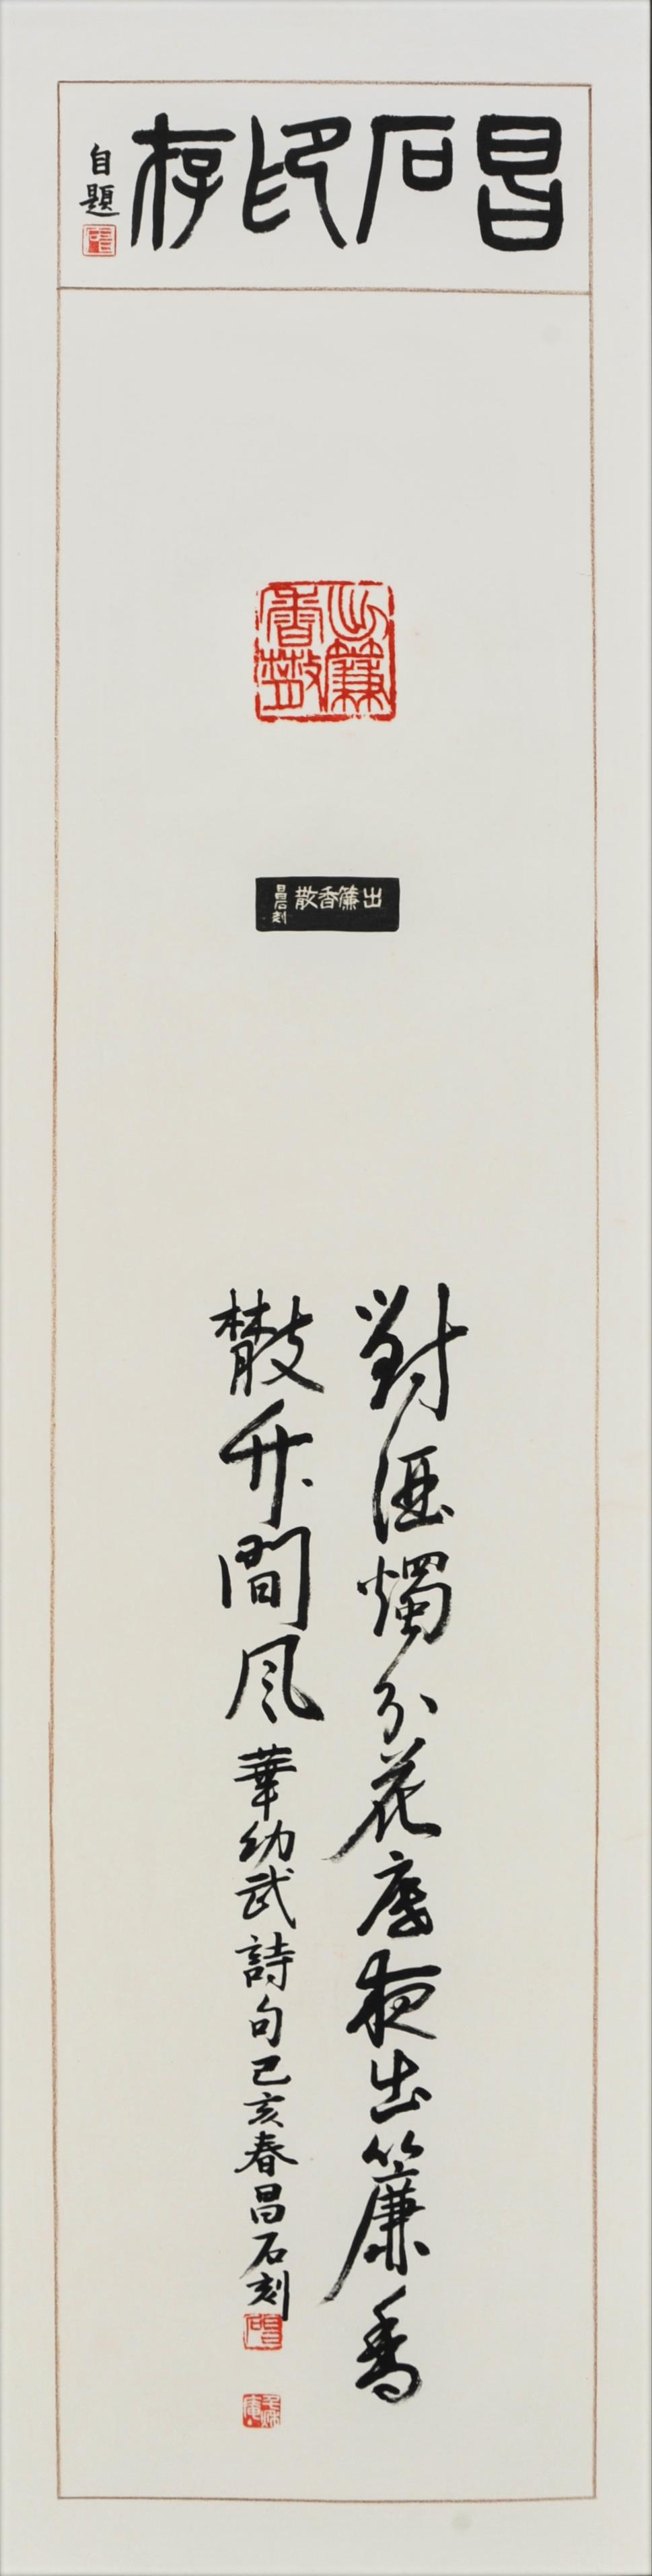 昌石印存
自題
昌石
出簾香散
出簾香散
昌石刻
對酒燭分花底夜出簾香
散竹間風 華幼武詩句己亥春昌石刻
昌石